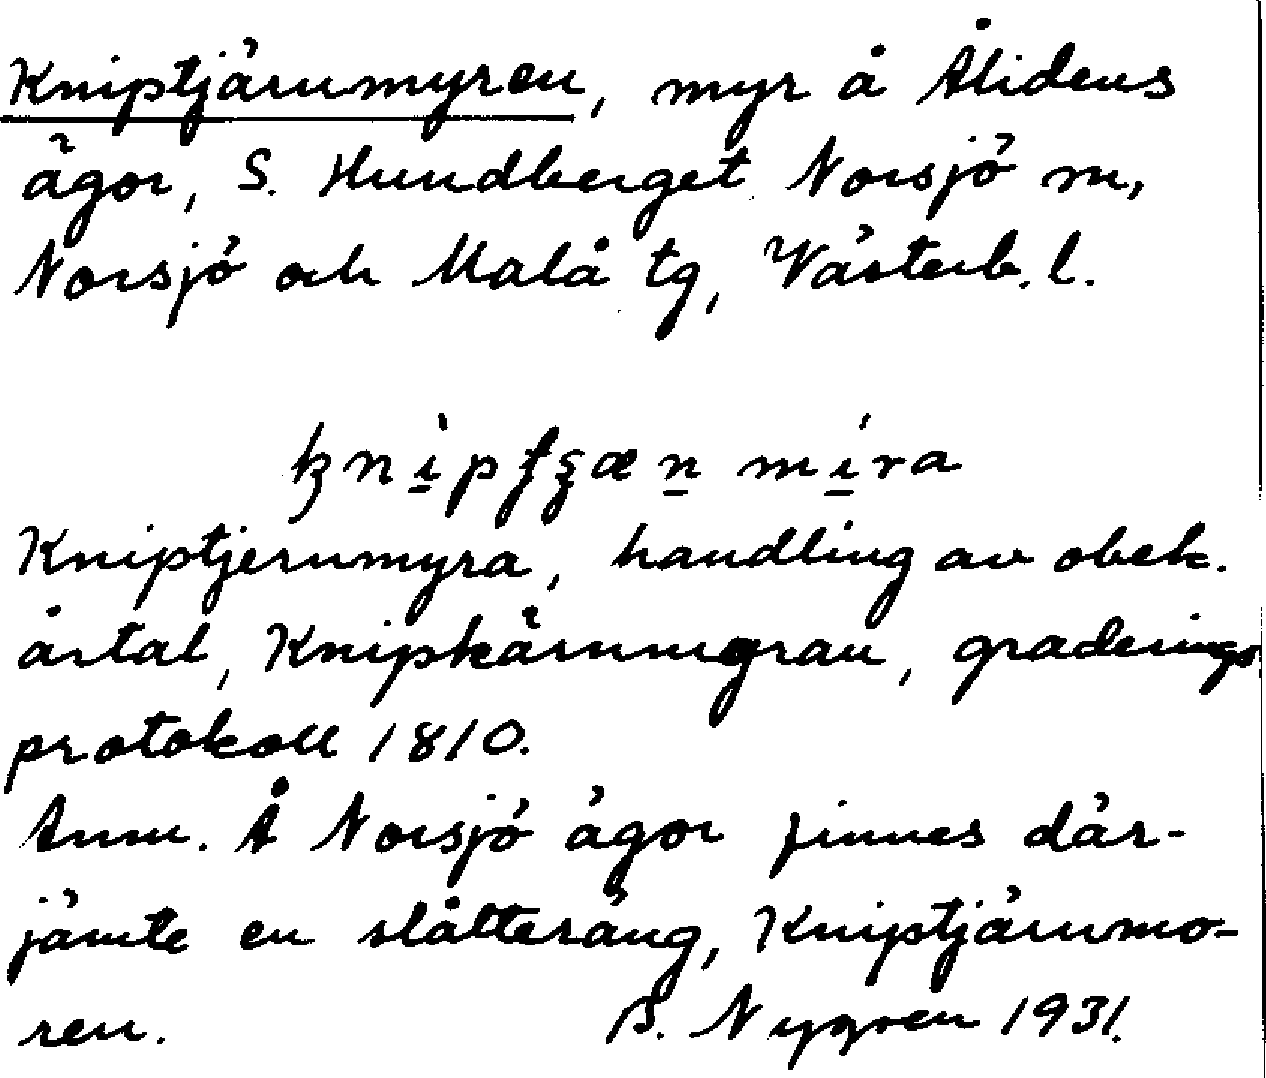 Kniptjärnmyren, myr å Ålidens
ägor, S. Hundberget Norsjö sn,
Norsjö och Malå tg, Västerb. l.
Kniptjernmyra, handling av obek.
årtal, Knipkärnmyran, graderings
protokoll 1810.
Anm. Å Norsjö ägor finnes där-
jämte en slåtteräng, Kniptjärnmo-
ren. B. Nygren 1931.